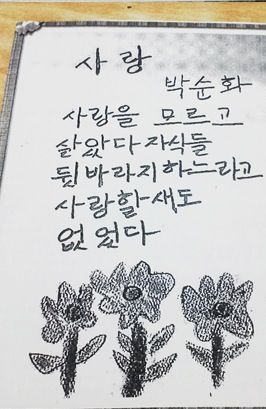 사랑
박순화
사랑을 모르고
살았다 자식들
뒷바라지하느라고
사랑할 새도
없었다